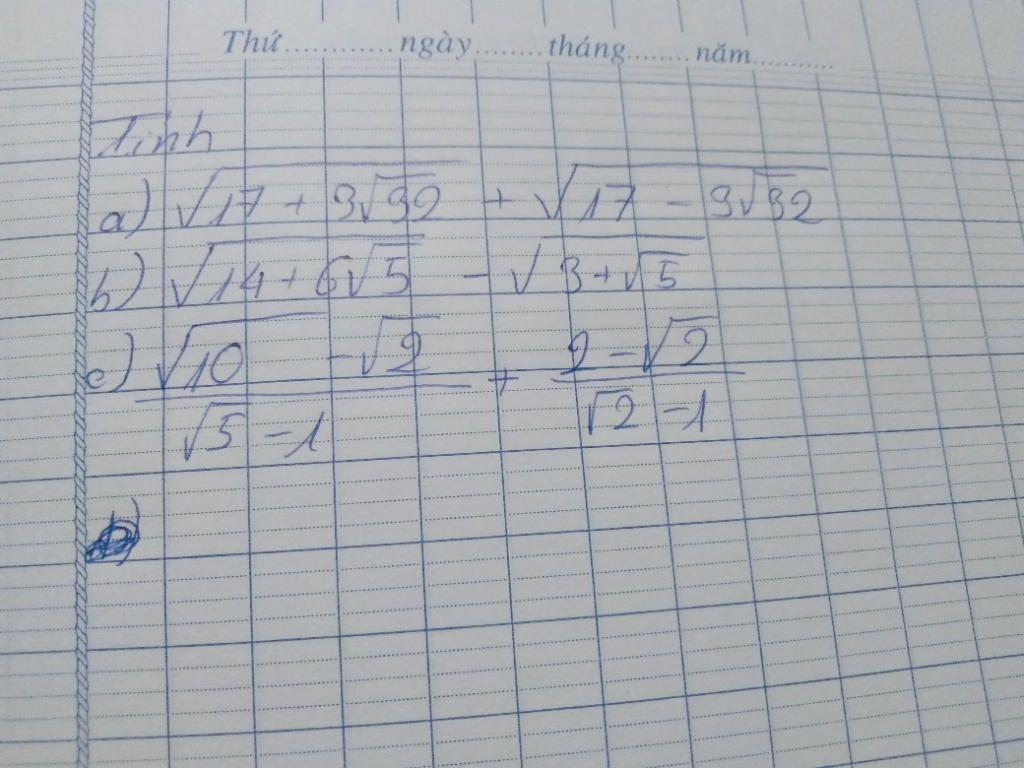 Thứ............ngày........tháng........năm...........
Tính
a) √(17 + 3√32) + √(17 - 3√32)
b) √(14 + 6√5) - √(3 + √5)
c) (√10 - √2)/(√5 - 1) + (2 - √2)/(√2 - 1)